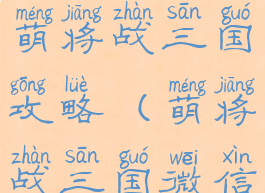 méng jiāng zhàn sān guó
萌将战三国
gōng lüè méng jiāng
攻略（萌将
zhàn sān guó wēi xìn
战三国微信